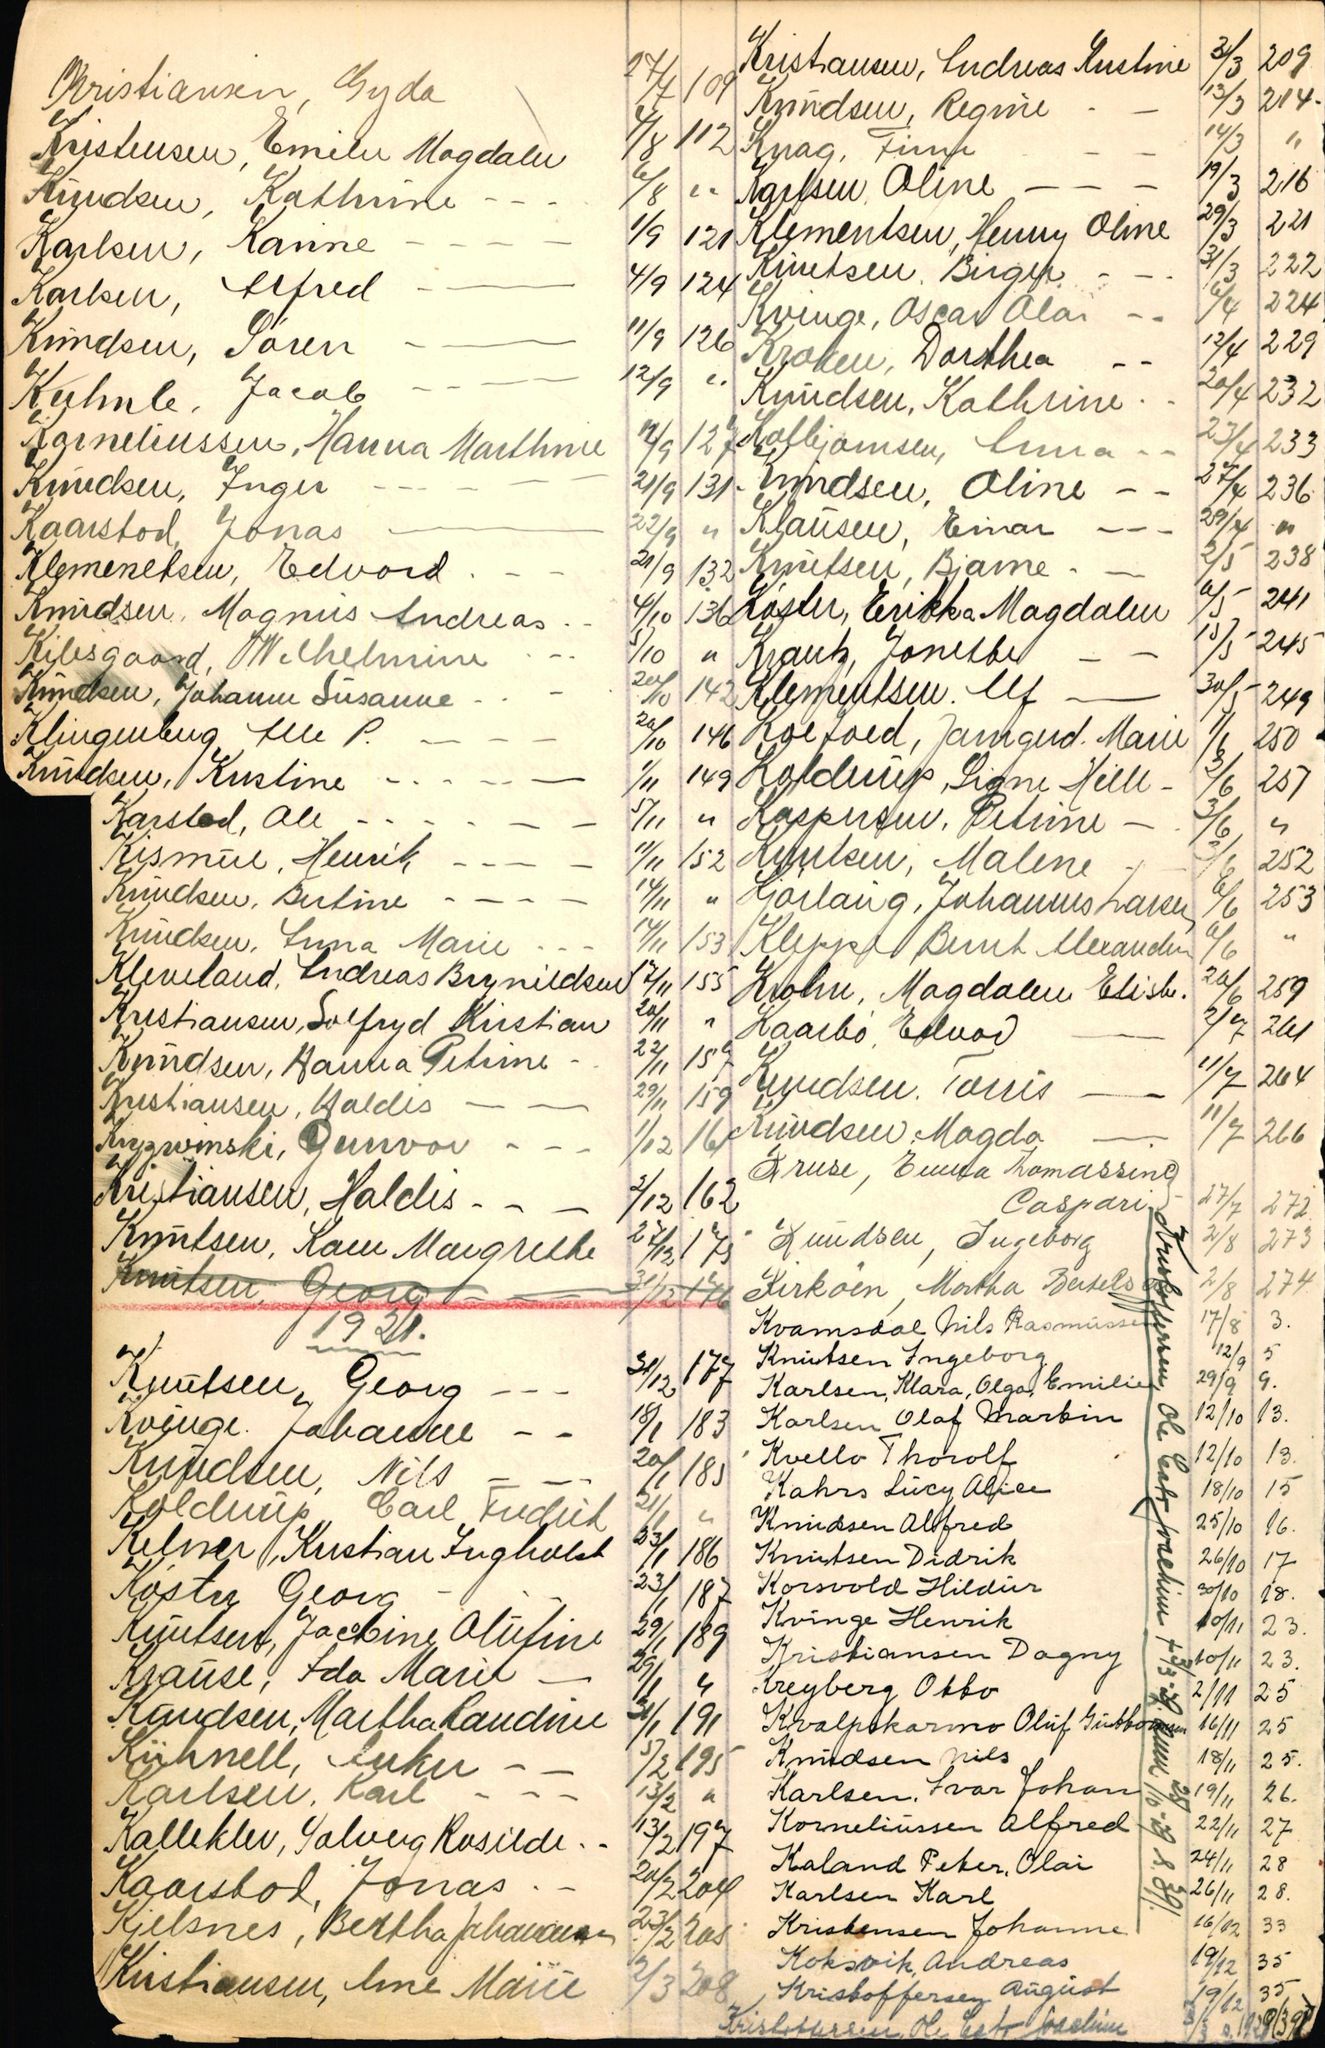 Kristiansen, Gyda 27/7 109
Kristensen, Emilie Magdalen 4/8 112
Knudsen, Kathrine - - - 6/8 "
Karlsen, Karine - - - - 1/9 121
Karlsen, Alfred - — 4/9 124
Knudsen, Sören - — 11/9 126
Kuhnle, Jacob - - — 12/9 "
Korneliussen, Hanna Marthine 12/9 127
Knudsen, Inger - - - - 21/9 131
Kaarstod, Jonas — 22/9 "
Klemenetsen, Edvard. - - 21/9 132
Knudsen, Magnus Andreas. . 4/10 136
Kilesgaard, Wilhelmine - - 5/10 "
Knudsen, Johanne Susanne - - 20/10 142
Klingenberg, Alle P. - - - - 20/10 146
Knudsen, Kristine - - - - - 1/11 149
Karstad, Ole - - - - - - 5/11 "
Kismul, Henrik - - - - 11/11 152
Knudsen, Bertine - - - - 14/11 "
Knudsen, Anna Marie - - - 14/11 153
Kleveland, Andreas Brynildsen 17/11 155
Kristiansen, Solfryd Kristian 20/11 "
Knudsen, Hanna Petrine - 22/11 157
Kristiansen, Haldis — — 29/11 159
Krzywinski, Gunvor - - - 1/12 161
Kristiansen, Haldis - - - 2/12 162
Knutsen, Kare Margrethe 27/12 175
Knutsen, Georg 31/12 176
1921.
Knutsen, Georg - - - 31/12 177
Kvinge. Johanne - - 18/1 183
Knudsen, Nils — — 20/1 185
Koldrup, Carl Fredrik 21/1 "
Kelner, Kristian Ingholdt 23/1 186
Koster Georg - - 23/1 187
Knutsen, Jacobine Olufine 29/1 189
Krause, Ida Marie — 29/1 "
Knudsen, Martha Landine 31/1 191
Kühnell, Anker - — 5/2 195
Karlsen, Karl - - - 13/2 "
Kallekler, Solveig Rosilde. . 13/2 197
Kaarstod, Jonas. - 20/2 204
Kjelsnes, Bertha Johannesen 23/2 205
Kristiansen, Ane Marie 2/3 208
Kristiansen, Andreas Kristine 3/3 209
Knudsen, Regine - — 13/3 214.
Knag, Finn — — 14/3 "
Karlsen, Oline — — — 19/3 216
Klementsen, Henny Oline 29/3 221
Knutsen, Birger. - - - 31/3 222
Kvinge, Oscar Olai - - 6/4 224
Kroken, Dorthea - - 12/4 229
Knudsen, Kathrine - - 20/4 232
Kolbjørnsen, Anna - - 23/4 233
Knudsen, Oline - - 27/4 236
Klausen, Einar - - - 29/4 "
Knutsen, Bjarne - — 2/5 238
Köster, Erikka Magdalen 6/5 241
Krantz, Jonetthe — — 15/5 245
Klementsen. Alf — 30/5 249
Koefoed, Jamgerd. Marie 1/6 250
Koldrup, Signe Helle - 2/6 257
Kaspersen, Petrine — 3/6 "
Knutsen, Malene 252
Kjørlaug, Johannes Larsen 6/6 253
Kleppe Bernt Alexander 6/6 "
Krohn, Magdalene Elisbe. 20/6 259
Kaarbö, Edvard — 2/7 261
Knudsen, Torris — 11/7 264
Knudsen, Magda — 11/7 266
Kruse, Emma Thomassine
Caspari 27/7 272
Knudsen, Ingeborg 2/8 273
Kirköen, Martha Bertels 2/8 274
Kvamsdal Nils Rasmussen 17/8 3.
Knutsen Ingeborg 12/9 5
Karlsen, Klara, Olga, Emilie 29/9 9.
Karlsen Olaf Martin 12/10 13.
Kvello Thorolf 12/10 13.
Kahrs Lucy Alice 18/10 15
Knudsen Alfred 25/10 16.
Knutsen Didrik 26/10 17
Korsvold Hildur 30/10 18.
Kvinge Henrik 10/11 23.
Kristiansen Dagny 10/11 23.
Kreyberg Otto 2/11 25
Kvalpskarmo Oluf Guttormsen 16/11 25
Knudsen Nils 18/11 25.
Karlsen, Ivar Johan 19/11 26.
Korneliussen Alfred 22/11 27
Kaland Peter, Olai 24/11 28
Karlsen Karl 26/11 28.
Kristensen Johanne 16/12 33
Koksvik, Andreas 19/12 35
Kristoffersen August 19/12 35
Kristoffersen, Ole Joachim
Kristoffersen, Ole Joachim